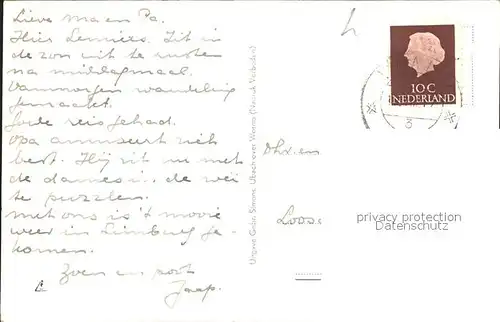 Lieve ma en Pa.
Hier Lemiers. Zit in
de zon uit te rusten
na middagmaal.
Vanmorgen wandeling
gemaakt.
Gude reis gehad.
Opa amuseert zich
best. Hij zit nu met
de dames in de wei
te puzzelen.
met ons is 't mooie
weer in Limburg ge-
komen.
Zoen en poot
Jaap.
Uitgave Gebr. Simons, Ubach over Worms
10 C
NEDERLAND
3
Dhr. en
Loos
privacy protection
Datenschutz